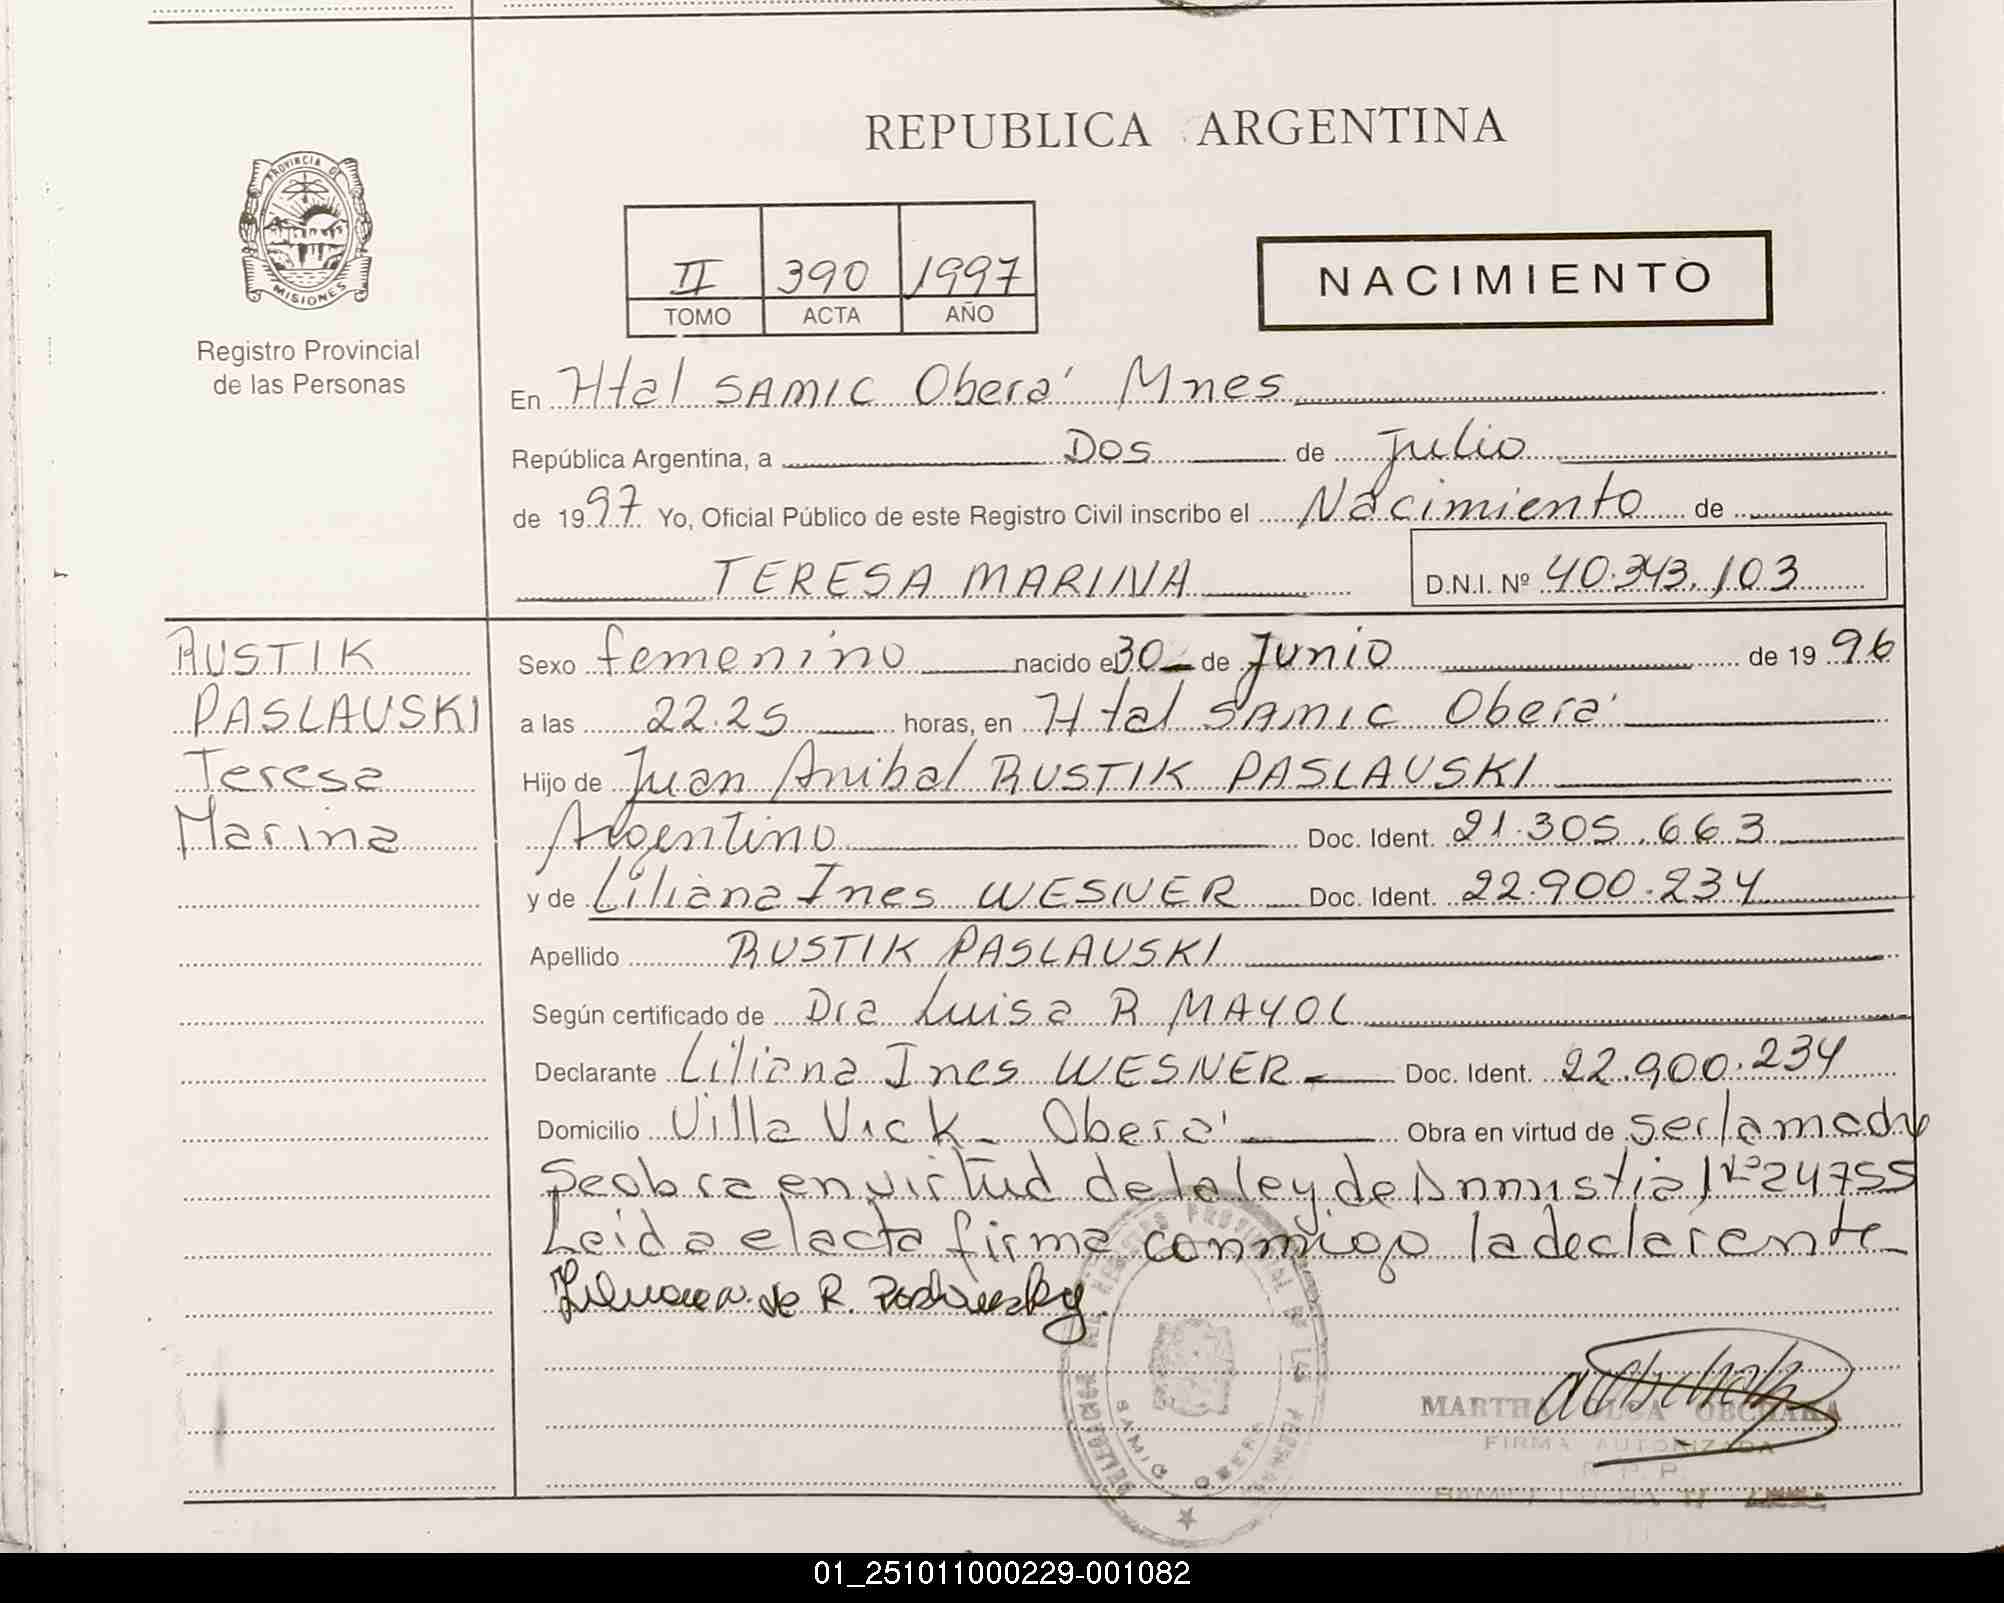 REPUBLICA ARGENTINA
PROVINCIA DE MISIONES
Registro Provincial
de las Personas
II 390 1997
TOMO ACTA AÑO
NACIMIENTO
En Htal SAMIC Oberá Mnes
República Argentina, a Dos de Julio
de 1997 Yo, Oficial Público de este Registro Civil inscribo el Nacimiento de
TERESA MARINA D.N.I. Nº 40.343.103
RUSTIK
PASLAUSKI
Teresa
Marina
Sexo femenino nacido el 30 de Junio de 1996
a las 22.25 horas, en Htal SAMIC Oberá
Hijo de Juan Anibal RUSTIK PASLAUSKI
Argentino Doc. Ident. 21.305.663
y de Liliana Ines WESNER Doc. Ident. 22.900.234
Apellido RUSTIK PASLAUSKI
Según certificado de Dra Luisa R MAYOL
Declarante Liliana Ines WESNER Doc. Ident. 22.900.234
Domicilio Villa Vick - Oberá Obra en virtud de ser la madre
Se obra en virtud de la ley de Amnistia Nº 24755
Leida el acta firma conmigo la declarante
de R.
SAMIC OBERA
MARTHA OBCHARA
FIRMA AUTORIZADA
R. P. P.
01_251011000229-001082